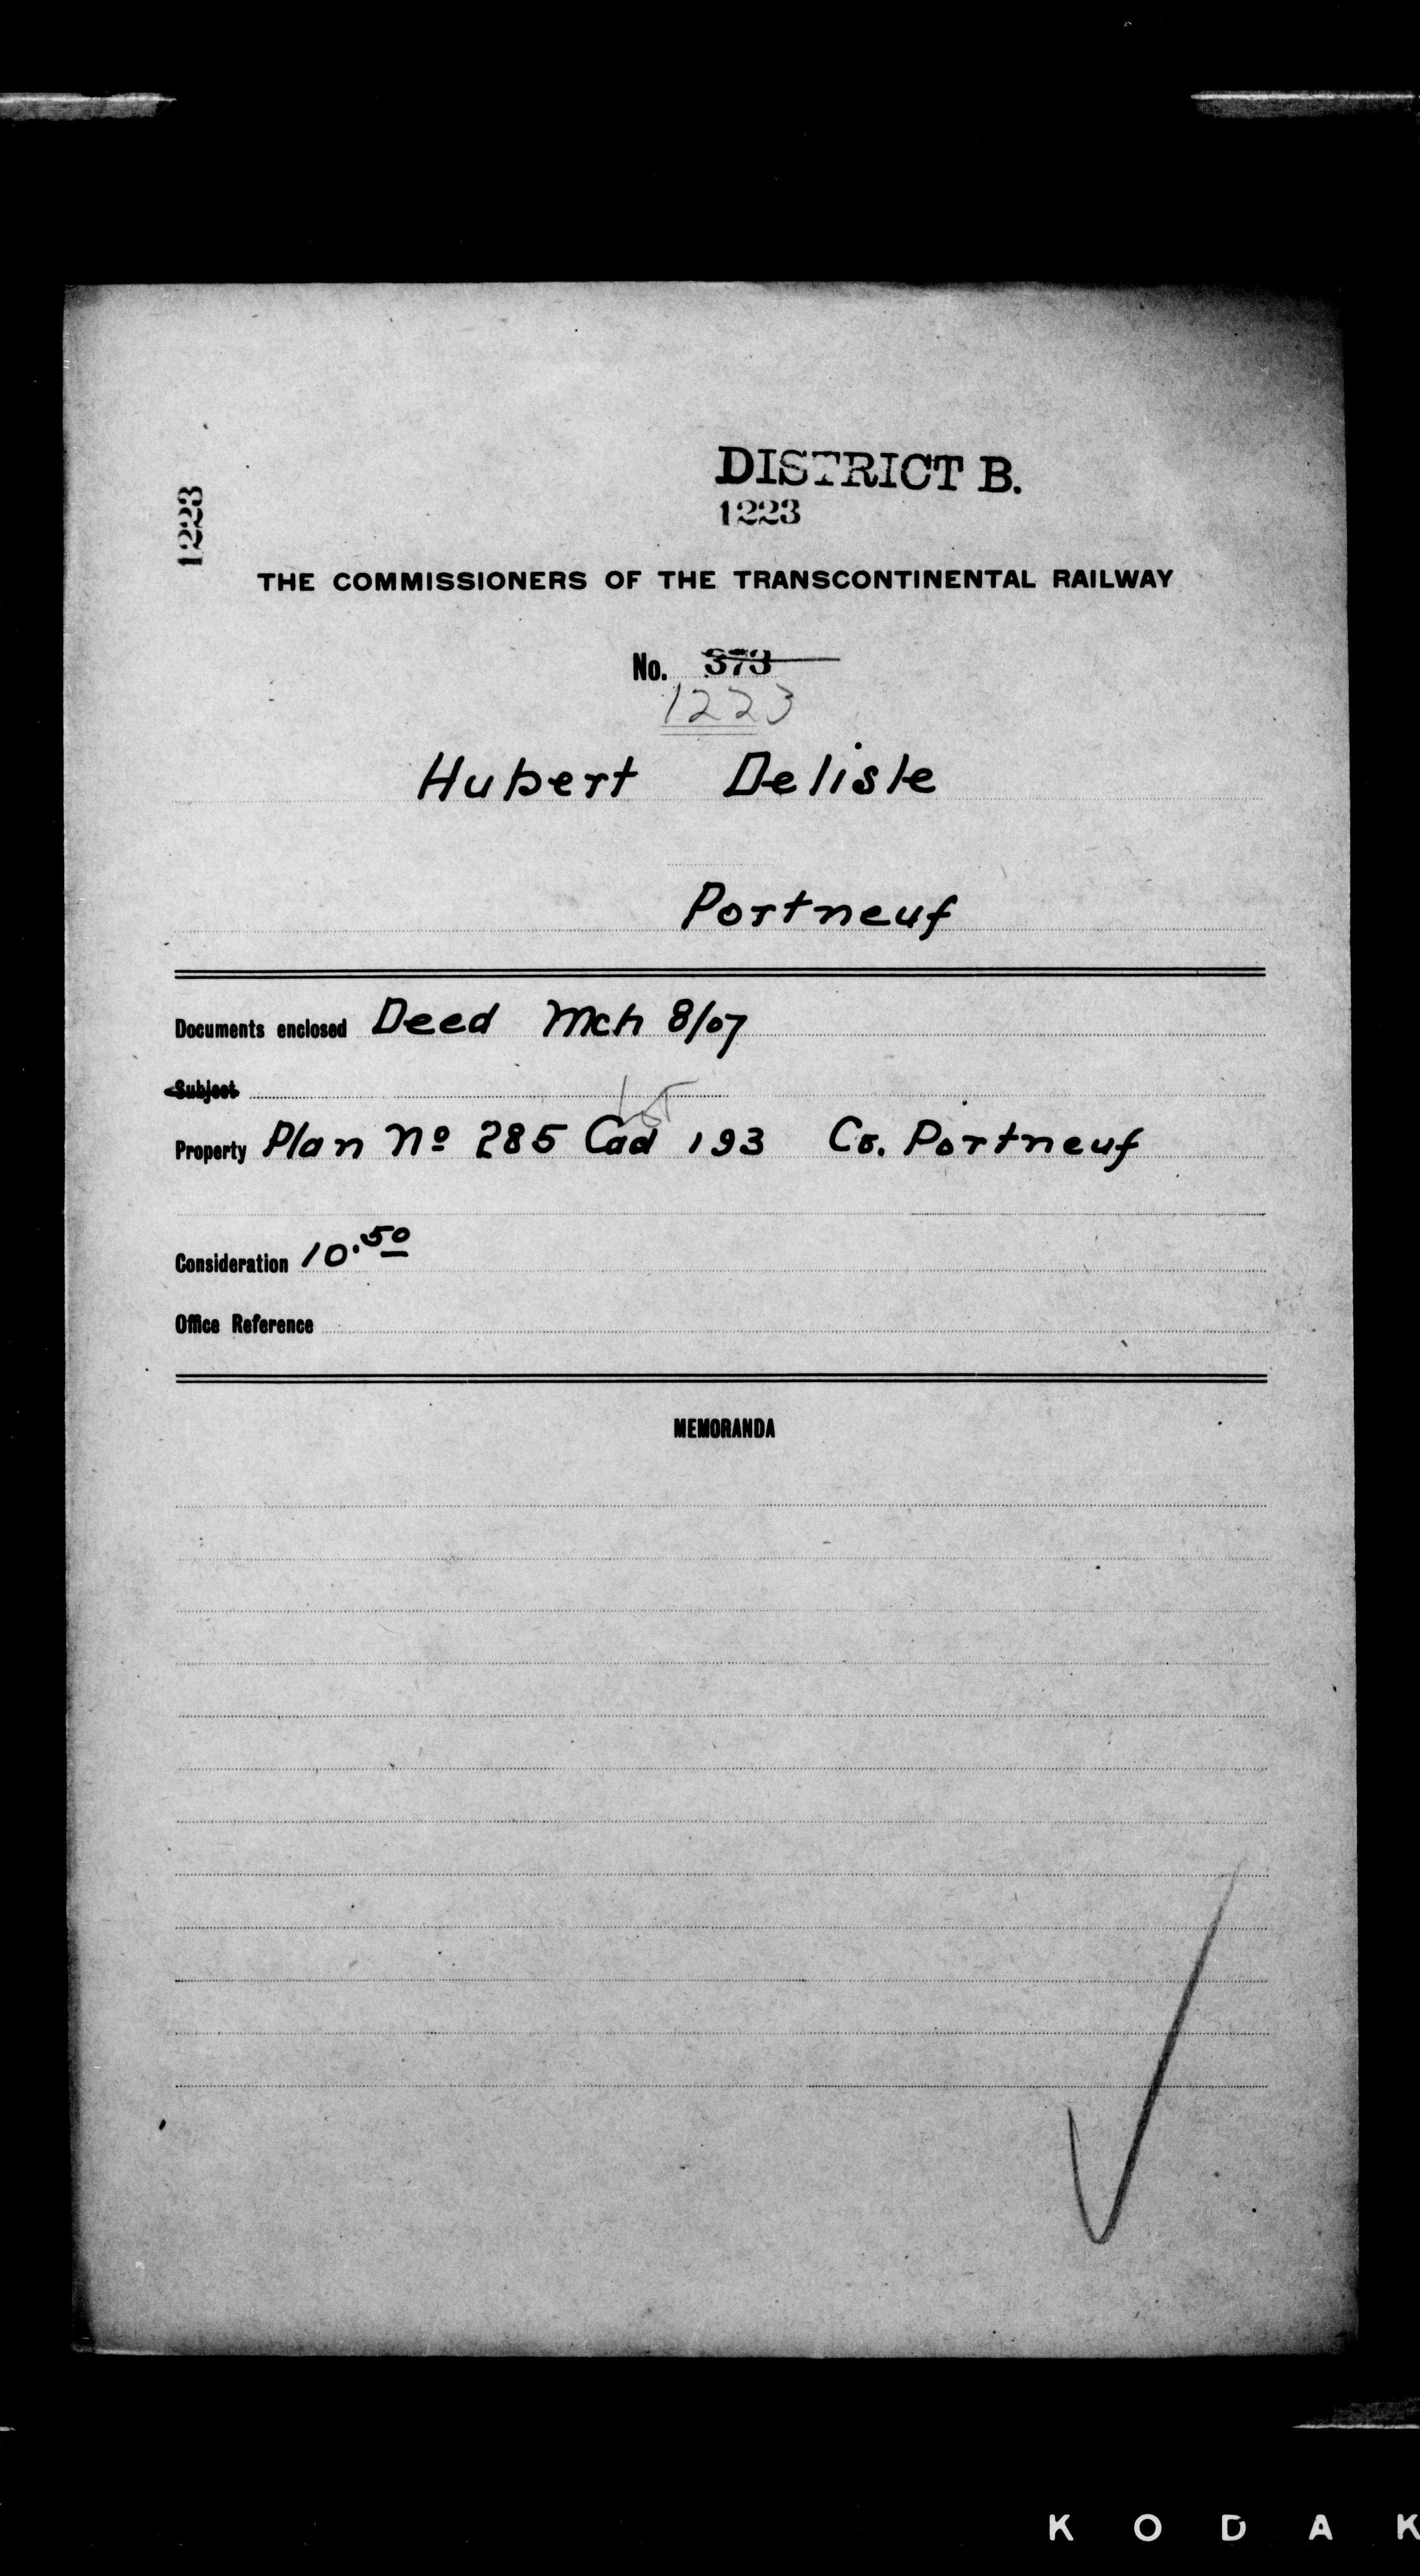 DISTRICT B.
1223
1223
THE COMMISSIONERS OF THE TRANSCONTINENTAL RAILWAY
No. 373
1223
Hubert Delisle
Portneuf
Documents enclosed Deed Mch 8/07
Subject
Lot
Property Plan No 285 Cad 193 Co. Portneuf
Consideration 10.50
Office Reference
MEMORANDA
KODAK